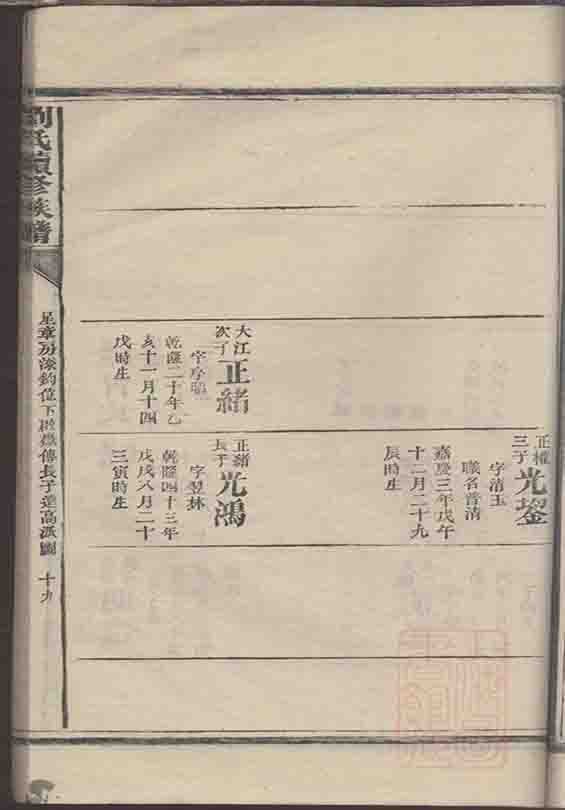 正權
三子
光鋆
字清玉
職名晉清
嘉慶三年戊午
十二月二十九
辰時生
大江
次子
正緒
字序昭
乾隆二十年乙
亥十一月十四
戌時生
正緒
長子
光鴻
字翌林
乾隆四十三年
戊戌八月二十
三寅時生
劉氏續修族譜
星章房深鈞位下 傳長子達高派圖
十九